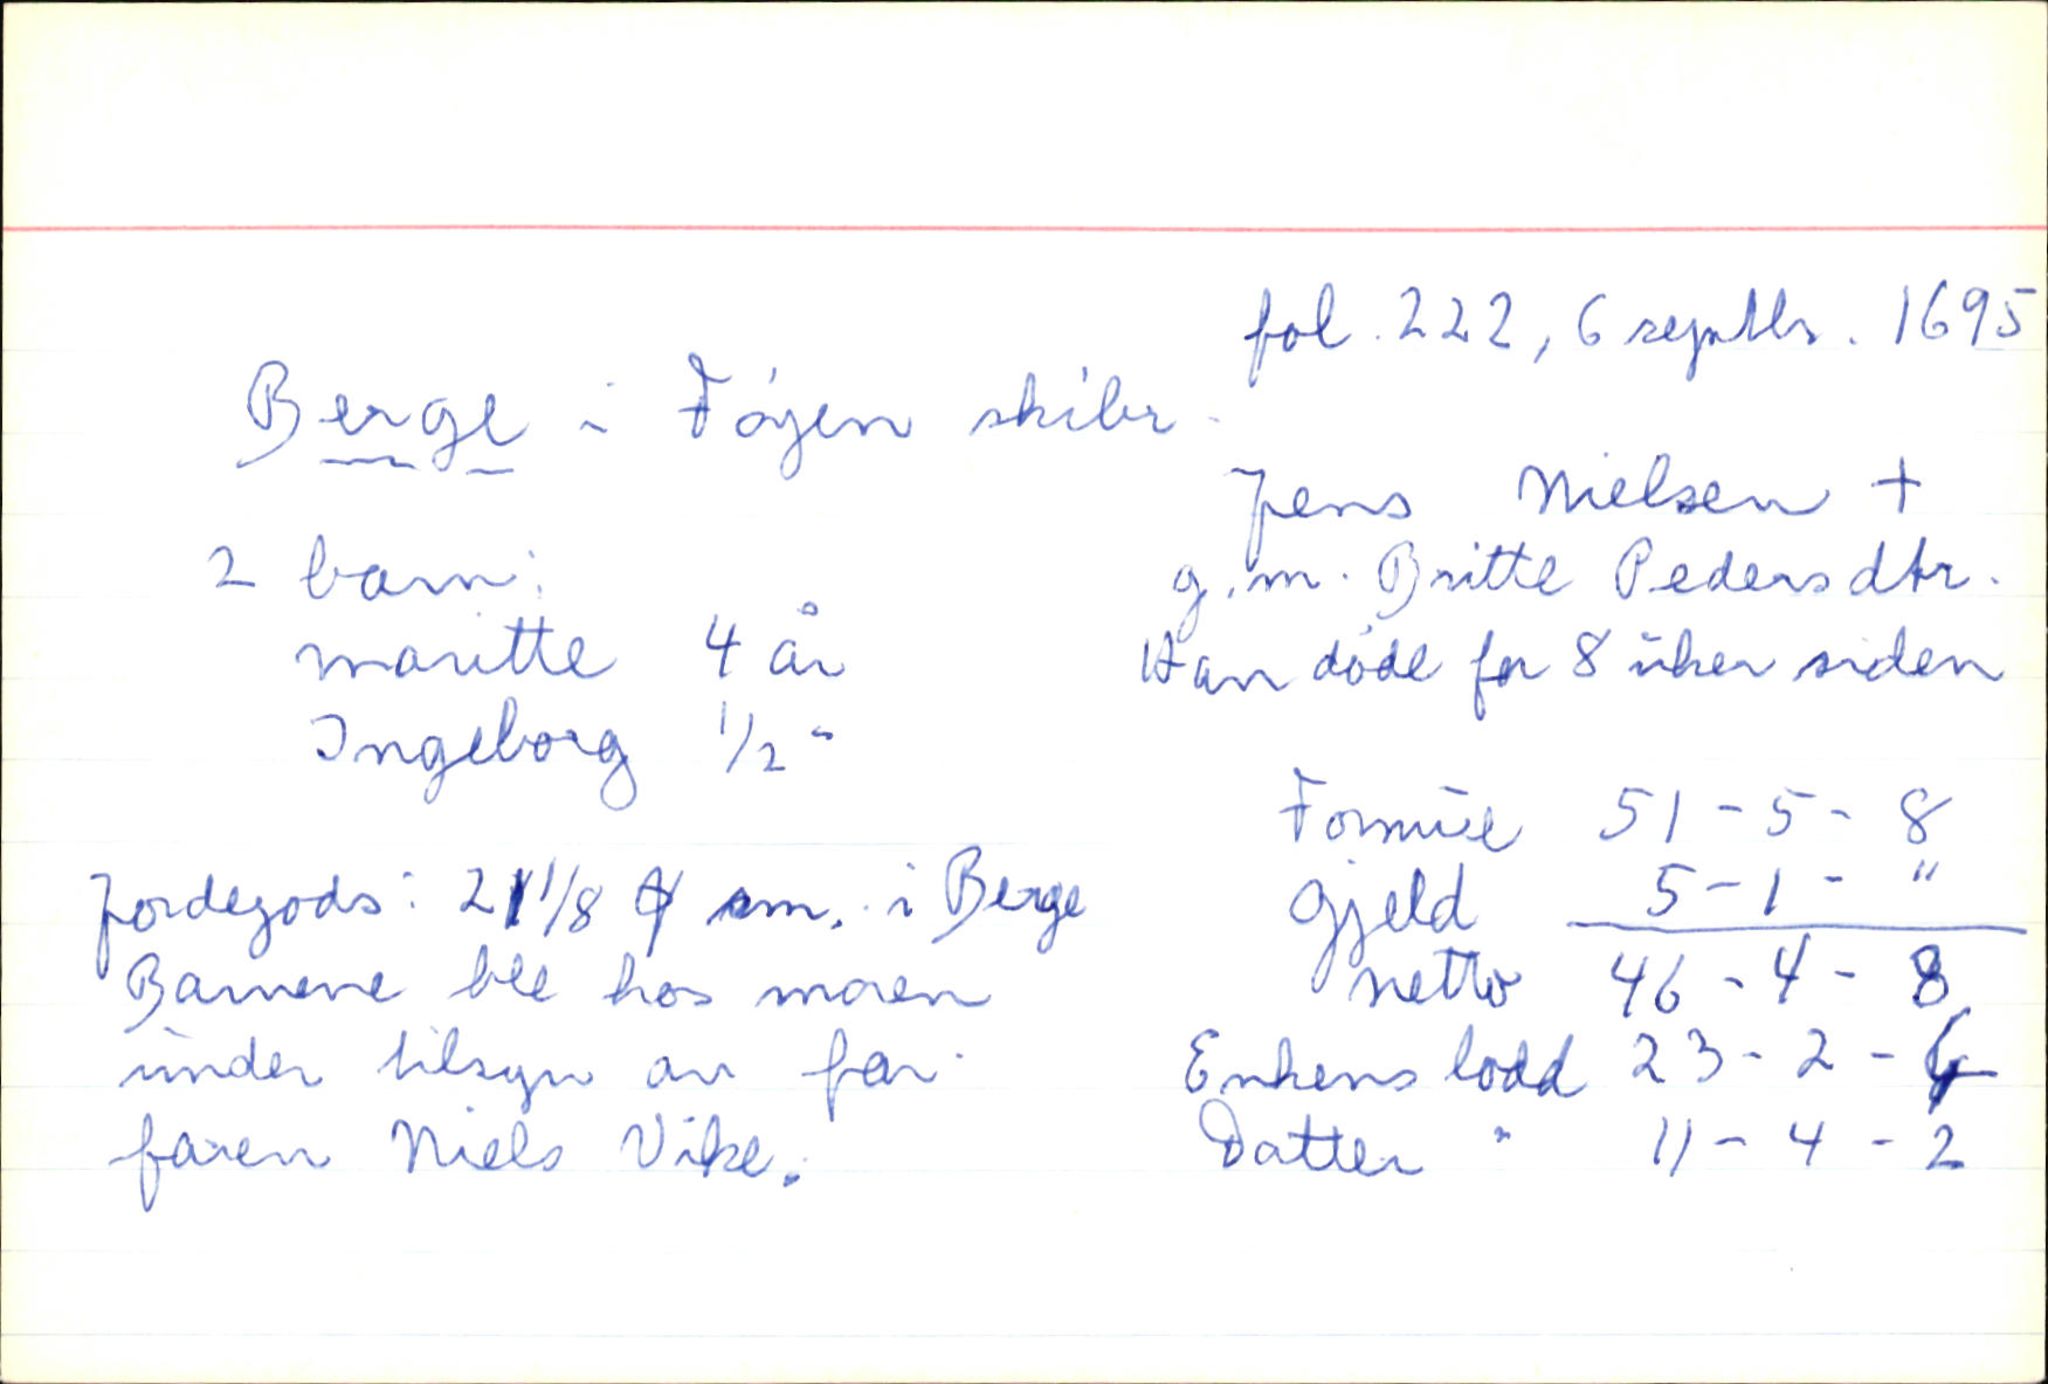 fol. 222, 6 septbr. 1695
Berge i Føyen skibr.
Jens Nielsen +
g.m. Britte Pedersdtr.
Han døde for 8 uker siden
2 barn:
Maritte 4 år
Ingeborg 1/2 "
Formue 51 - 5 - 8
Gjeld 5 - 1 - "
netto 46 - 4 - 8
Enkens lodd 23 - 2 - 4
Datter " 11 - 4 - 2
Jordegods: 21 1/8 sm. i Berge
Barnene ble hos moren
under tilsyn av far-
faren Niels Vike.